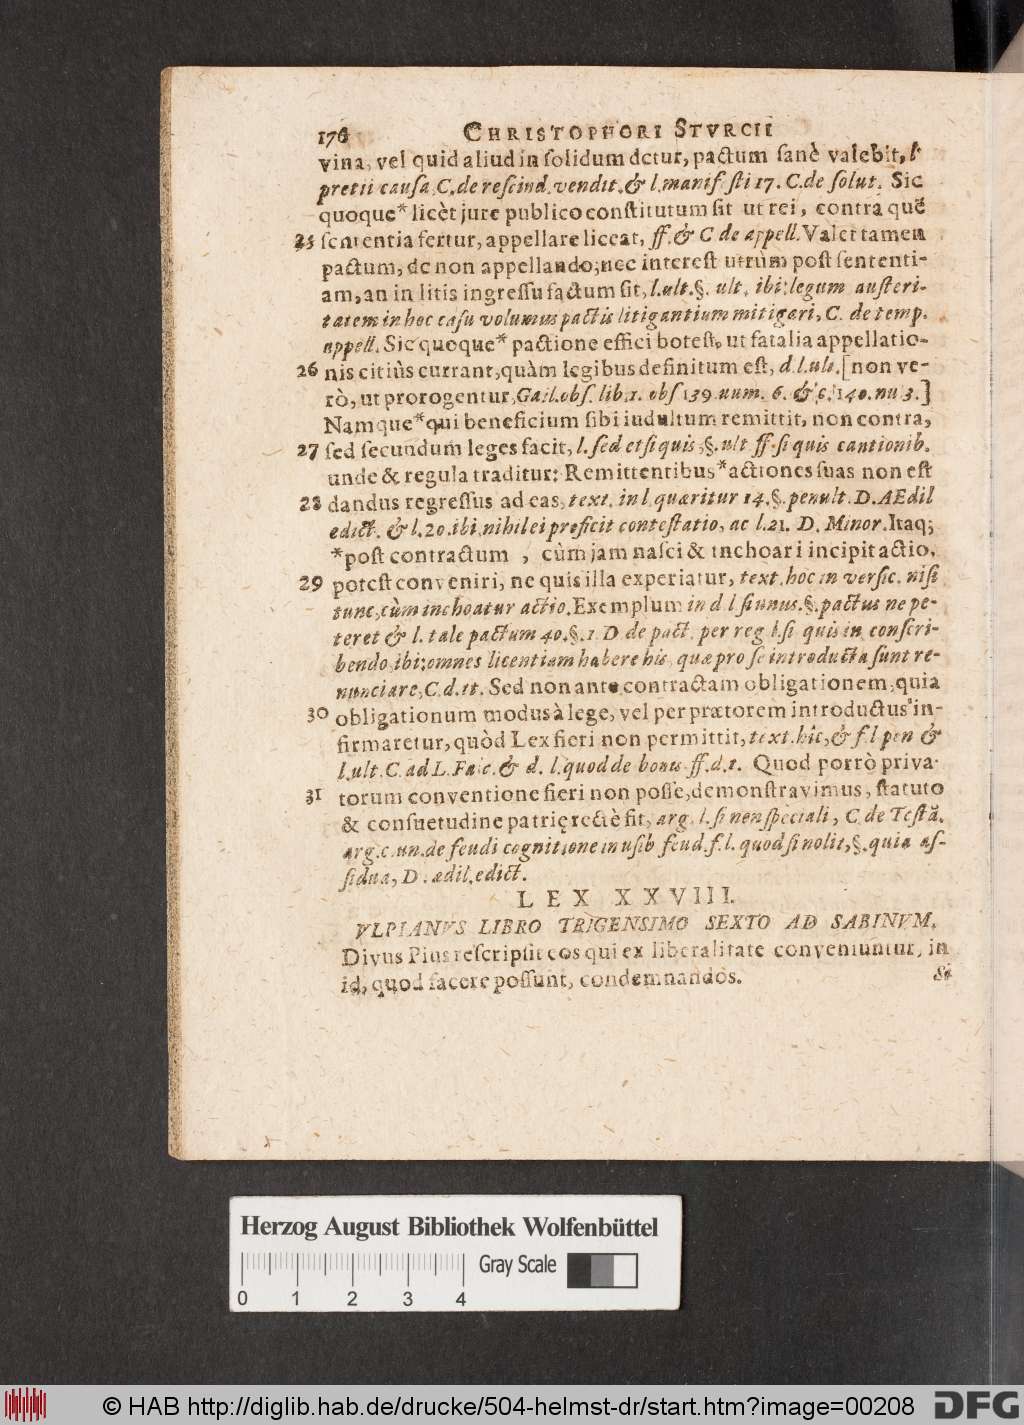 176 CHRISTOPHORI STVRCII
vina, vel quid aliud in solidum detur, pactum sanè valebit, l.
pretii causa, C. de rescind. vendit. & l. manifesti 17. C. de solut. Sic
quoque* licèt jure publico constitutum sit ut rei, contra quẽ
25 sententia fertur, appellare liceat, ff. & C de appell. Valet tamen
pactum, de non appellando; nec interest utrùm post sententi-
am, an in litis ingressu factum sit, l. ult. §. ult. ibi: legum austeri-
tatem in hoc casu volumus pactis litigantium mitigari, C. de temp.
appell. Sic quoque* pactione effici potest, ut fatalia appellatio-
26 nis citiùs currant, quàm legibus definitum est, d. l. ult. [non ve-
rò, ut prorogentur, Gail. obs. lib. 1. obs 139 num. 6. & c. 140. nu 3.]
Namque* qui beneficium sibi indultum remittit, non contra,
27 sed secundum leges facit, l. sed et si quis, §. ult ff. si quis cautionib.
unde & regula traditur: Remittentibus* actiones suas non est
28 dandus regressus ad eas, text. in l. quæritur 14. §. penult. D. AEdil
edict. & l. 20. ibi, nihil ei proficit contestatio, ac l. 21. D. Minor. Itaq;
*post contractum , cùm jam nasci & inchoari incipit actio,
29 potest conveniri, ne quis illa experiatur, text. hoc in versic. nisi
tunc, cùm inchoatur actio. Exemplum in d l si unus. §. pactus ne pe-
teret & l. tale pactum 40. §. 1 D de pact. per reg l. si quis in conscri-
bendo, ibi: omnes licentiam habere his, quæ pro se introducta sunt re-
nunciare, C. d. tt. Sed non ante contractam obligationem, quia
30 obligationum modus à lege, vel per prætorem introductus* in-
firmaretur, quòd Lex fieri non permittit, text. hîc, & f. l pen &
l. ult. C. ad L. Falc. & d. l. quod de bonis ff. d. t. Quod porrò priva-
31 torum conventione fieri non posse, demonstravimus, statuto
& consuetudine patrię rectè fit, arg. l. si non speciali, C. de Testã.
arg. c. un. de feudi cognitione in usib feud. f. l. quod si nolit, §. quia as-
sidua, D. ædil. edict.
LEX XXVIII.
VLPIANVS LIBRO TRIGENSIMO SEXTO AD SABINVM.
Divus Pius rescripsit eos qui ex liberalitate conveniuntur, in
id, quod facere possunt, condemnandos.
Si
Herzog August Bibliothek Wolfenbüttel
Gray Scale
0 1 2 3 4
© HAB http://diglib.hab.de/drucke/504-helmst-dr/start.htm?image=00208
DFG